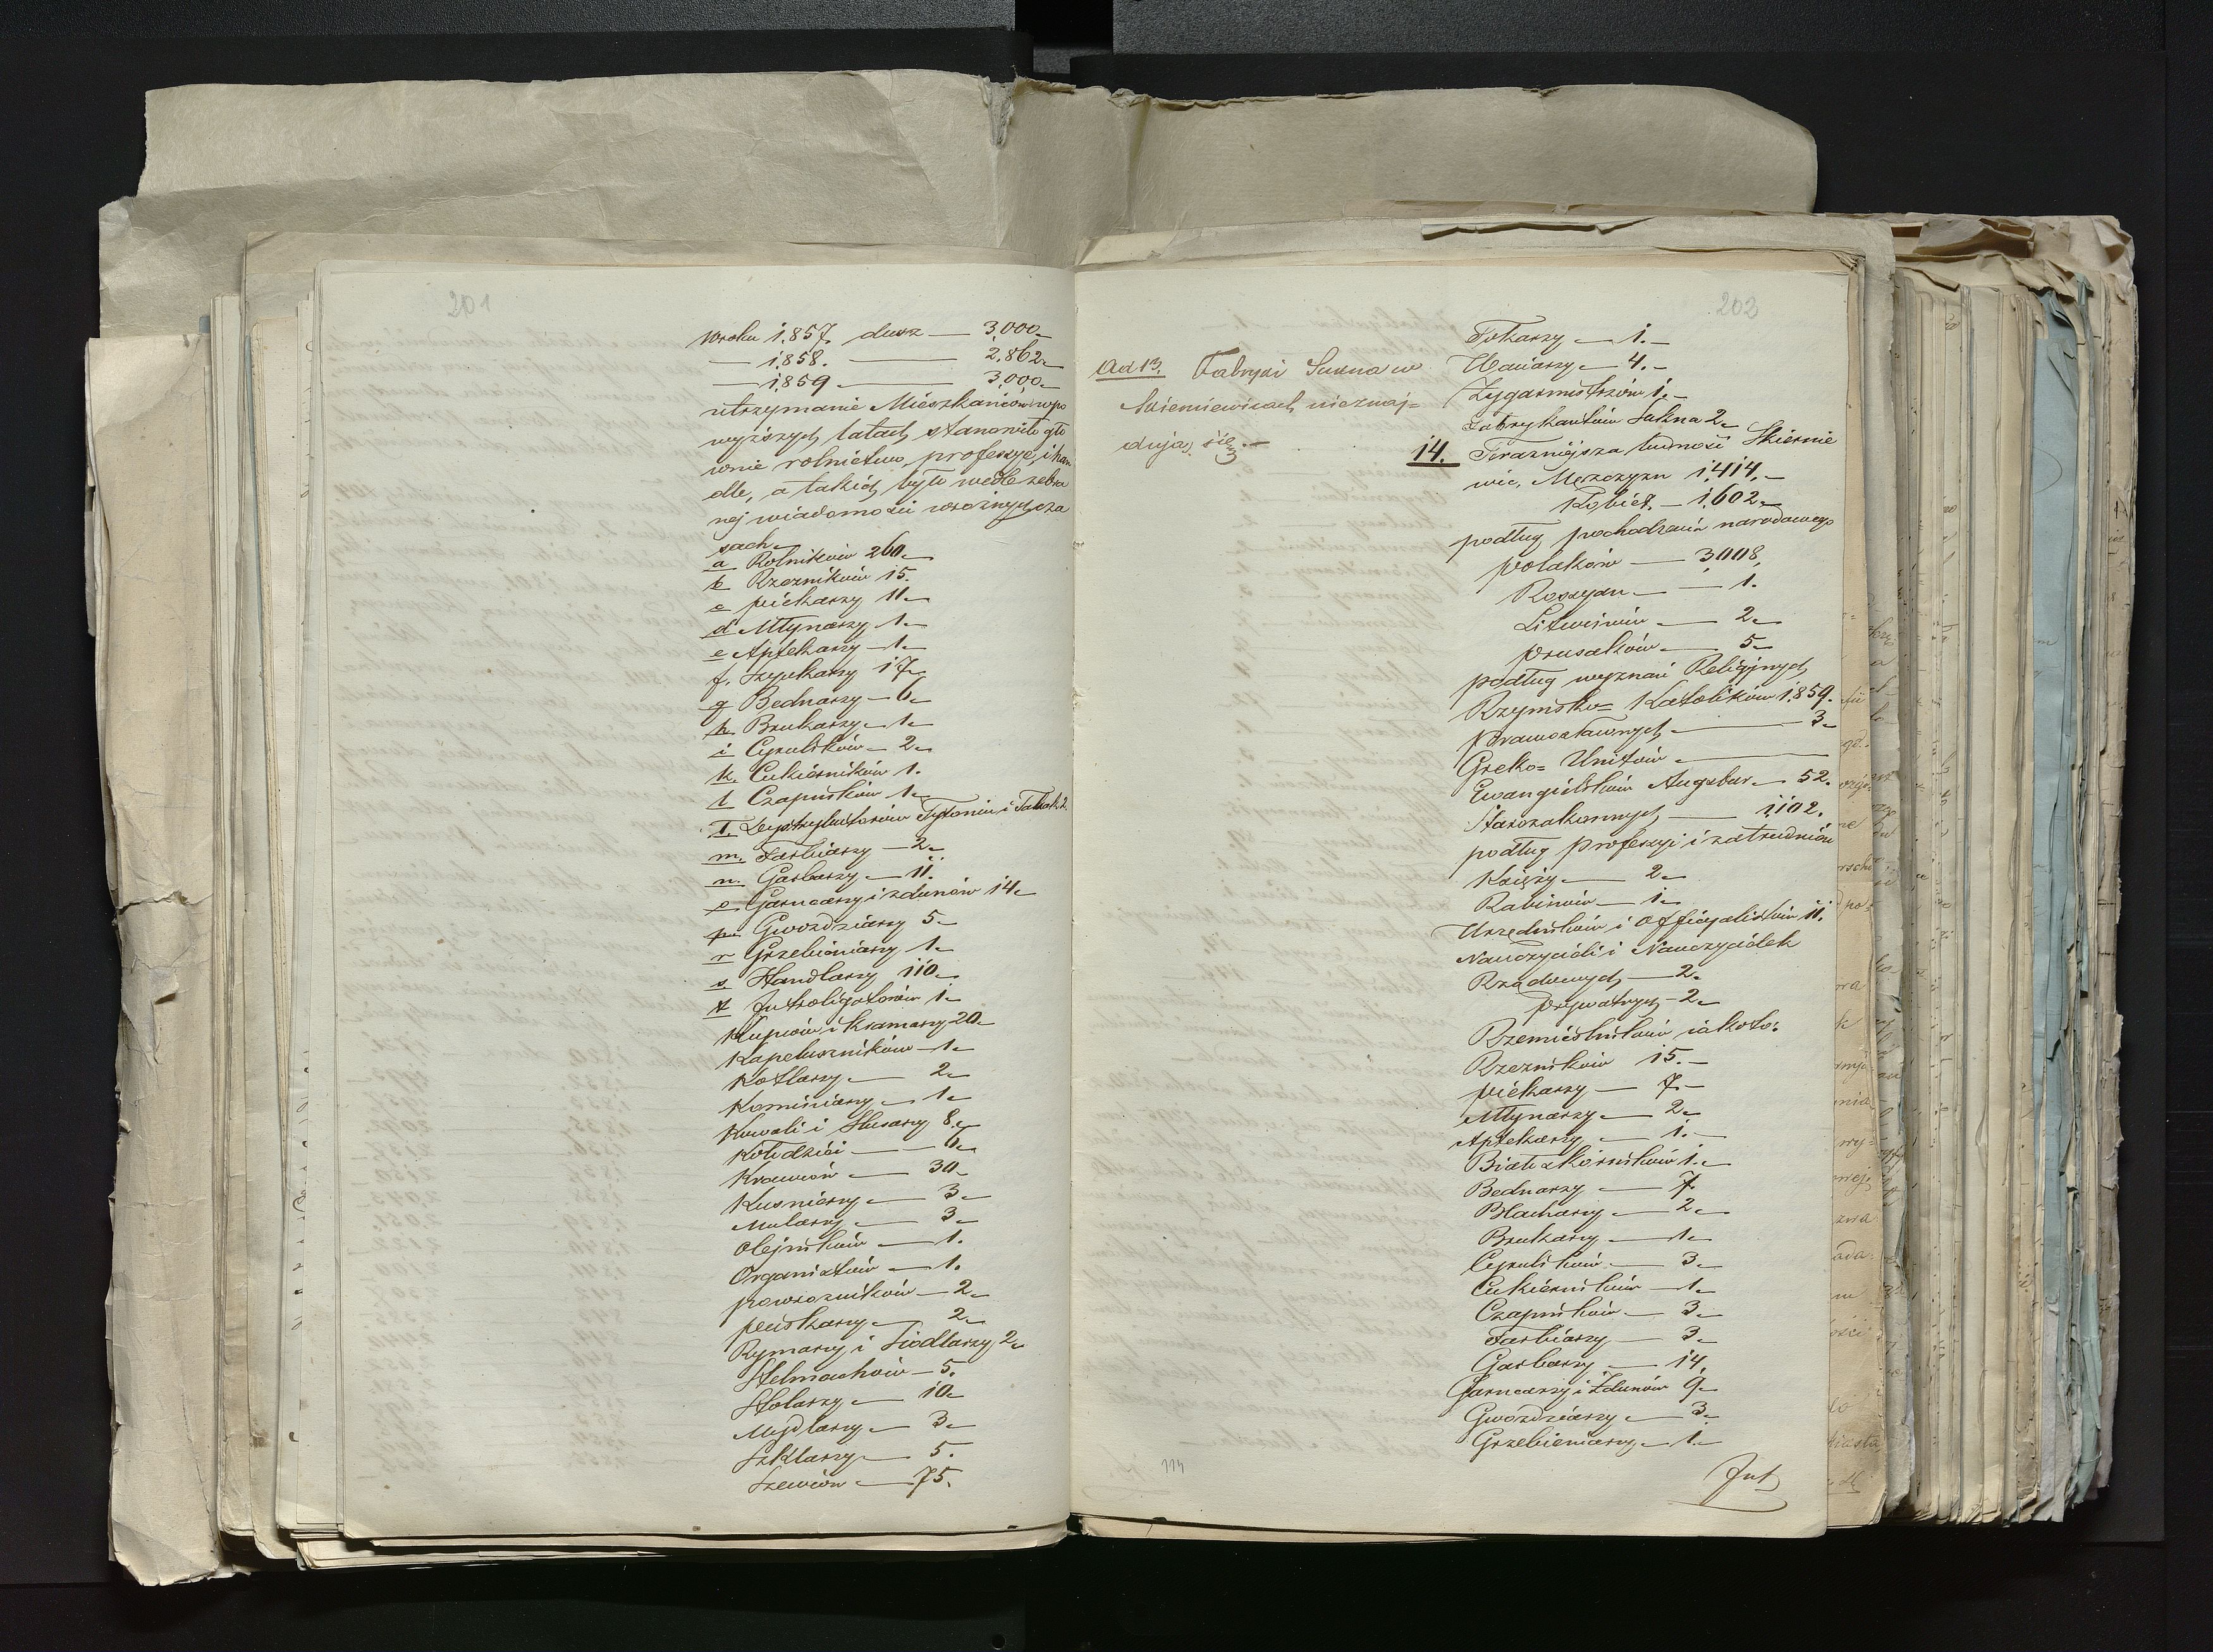 201
wroku 1,857. dusz — 3,000.
— 1,858. — 2,862.
— 1,859 — 3,000.
utrzymanie Mieszkańców wpo
wyższych latach stanowiło głó
wnie rolnictwo, professye, i han
dle, a takich było wedle zebra
nej wiadomości wróżnych cza
sach.
a Rolników 260.
b Rzezników 15.
c piekarzy 11.
d Młynarzy 1.
e Aptekarzy 1.
f. Szynkarzy 17.
g Bednarzy — 6.
h. Brukarzy — 1.
i Cyrulików — 2.
k. Cukierników 1.
l Czapników 1.
ł. Dystrybutorów Tytoniu i Tabaki 2.
m. Farbiarzy — 2.
n. Garbarzy — 11.
o Garncarzy i zdunów 14.
p. Gwoździarzy 5.
r Grzebieniarzy 1.
s. Handlarzy 110.
t Introligatorów 1.
Kupców i kramarzy 20.
Kapeluszników — 1.
Kotlarzy — 2.
Kominiarzy — 1.
Kowali i Slusarzy 8.
Kołodziei — 6.
Krawców — 30.
Kusnierzy — 3.
Mularzy — 3.
Olejników — 1.
Organistów — 1.
powrozników — 2.
puszkarzy — 2.
Rymarzy i Siodlarzy 2.
Stelmachów — 5.
Stolarzy — 10.
Mydlarzy — 3.
Szklarzy — 5.
Szewców — 75.
202
Ad 13. Fabryki Sukna w
Skierniewicach nieznaj=
dują się.
Tokarzy — 1.
Zygarmistrzów 1.
Fabrykantów Sukna 2.
14. Terazniejsza ludność Skiernie
wic, Męzczyzn 1,414.
Kobiet — 1,602.
podług pochodzenia narodowego
polaków — 3,008.
Rossyan — 1.
Litwinów — 2.
prusaków — 5.
podług wyznań Religijnych
Rzymsko= Katolików 1,859.
prawosławnych — 3.
Greko= Unitów —
Ewangielików Augsbur — 52.
Starozakonnych — 1,102.
podług professyi i zatrudnień
Księży — 2.
Rabinów — 1.
Urzędników i Officyalistów 11.
Nauczycieli i Nauczycielek
Rządowych — 2.
prywatnych — 2.
Rzemieślników iakoto:
Rzezników 15.
piekarzy — 7.
Młynarzy — 2.
Aptekarzy — 1.
Białoskórników 1.
Bednarzy — 7
Blacharzy — 2.
Brukarzy — 1.
Cyrulików — 3.
Cukierników — 1.
Czapników — 3.
Farbiarzy — 3.
Garbarzy — 14.
Garncarzy i Zdunów 9.
Gwoździarzy — 3.
Grzebieniarzy — 1.
Int
114